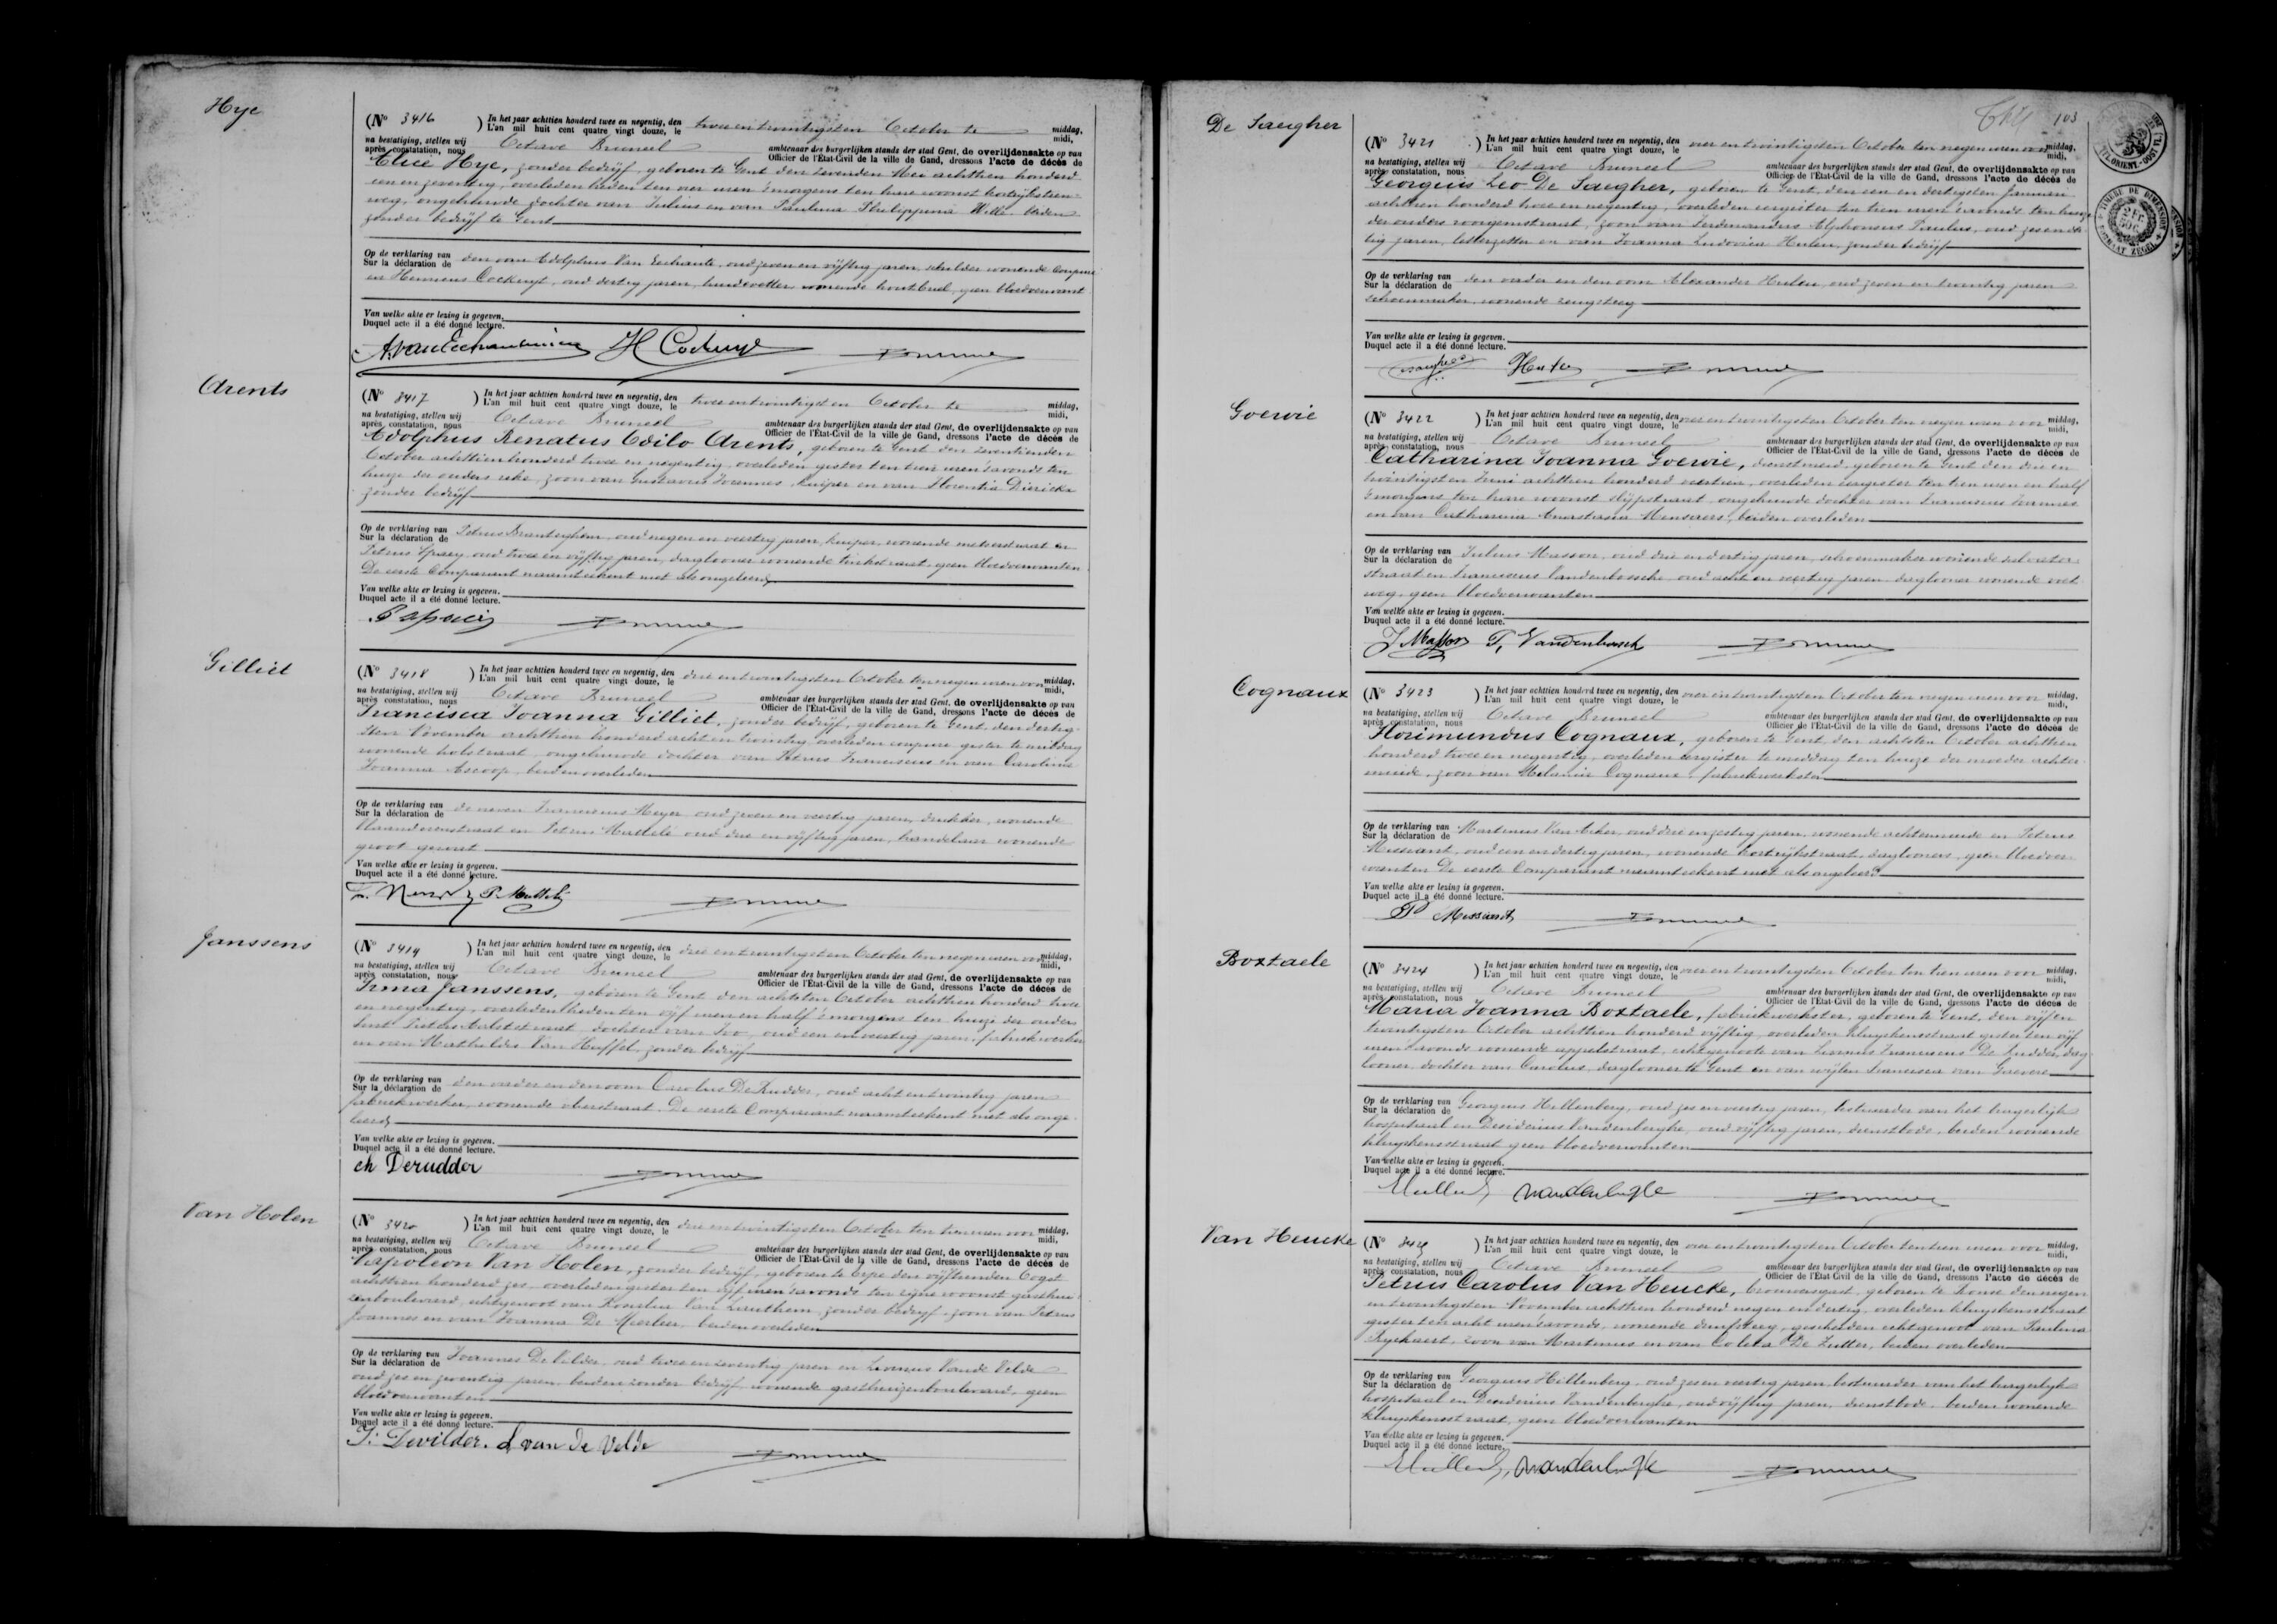 Hye
(No 3416 ) In het jaar achttien honderd twee en negentig, den twee en twintigsten October te middag,
L'an mil huit cent quatre vingt douze, le midi,
na bestatiging, stellen wij Octave Bruneel ambtenaar des burgerlijken stands der stad Gent, de overlijdensakte op van
après constatation, nous Officier de l'État-Civil de la ville de Gand, dressons l'acte de décès de
Alice Hye, zonder bedrijf, geboren te Gent den zevenden Mei achttien honderd
een en zeventig, overleden heden ten vier uren 's morgens ten hare woonst kortrijksteen-
weg, ongehuwde dochter van Julius en van Paulina Philippina Wille, beiden
zonder bedrijf te Gent
Op de verklaring van den oom Adolphus Van Eechaute, oud zeven en vijftig jaren, schilder wonende Coupure
Sur la déclaration de
en Henricus Cockuyt, oud dertig jaren, wonende houtbriel, geen bloedverwant
Van welke akte er lezing is gegeven.
Duquel acte il a été donné lecture.
H Cockuyt
Arents
(No 3417 ) In het jaar achttien honderd twee en negentig, den twee en twintigsten October te middag,
L'an mil huit cent quatre vingt douze, le midi,
na bestatiging, stellen wij Octave Bruneel ambtenaar des burgerlijken stands der stad Gent, de overlijdensakte op van
après constatation, nous Officier de l'État-Civil de la ville de Gand, dressons l'acte de décès de
Adolphus Renatus Odilo Arents, geboren te Gent den zeventienden
October achttien honderd twee en negentig, overleden gister ten tien uren 's avonds ten
huize der ouders reke, zoon van Gustavus Joannes, kuiper en van Florentia Dierickx
zonder bedrijf
Op de verklaring van Petrus Branteghem, oud negen en veertig jaren, kuiper, wonende meerstraat en
Sur la déclaration de
Petrus oud twee en vijftig jaren, daglooner wonende geen bloedverwanten
De eerste Comparant naamteekent niet als ongeleerd
Van welke akte er lezing is gegeven.
Duquel acte il a été donné lecture.
Gilliet
(No 3418 ) In het jaar achttien honderd twee en negentig, den drie en twintigsten October ten negen uren voor middag,
L'an mil huit cent quatre vingt douze, le midi,
na bestatiging, stellen wij Octave Bruneel ambtenaar des burgerlijken stands der stad Gent, de overlijdensakte op van
après constatation, nous Officier de l'État-Civil de la ville de Gand, dressons l'acte de décès de
Francisca Joanna Gilliet, zonder bedrijf, geboren te Gent, den dertig-
sten November achttien honderd acht en twintig, overleden coupure gister te middag
wonende holstraat, ongehuwde dochter van Petrus Franciscus en van Carolina
Joanna Ascoop, beiden overleden
Op de verklaring van de neven Franciscus Meyer oud zeven en veertig jaren, drukker, wonende
Sur la déclaration de
Vlaanderenstraat en Petrus Mattelé oud drie en vijftig jaren, handelaar wonende
groot gewest
Van welke akte er lezing is gegeven.
Duquel acte il a été donné lecture.
P. Mattelé
Janssens
(No 3419 ) In het jaar achttien honderd twee en negentig, den drie en twintigsten October ten negen uren voor middag,
L'an mil huit cent quatre vingt douze, le midi,
na bestatiging, stellen wij Octave Bruneel ambtenaar des burgerlijken stands der stad Gent, de overlijdensakte op van
après constatation, nous Officier de l'État-Civil de la ville de Gand, dressons l'acte de décès de
Irma Janssens, geboren te Gent den achtsten October achttien honderd twee
en negentig, overleden heden ten vijf uren en half 's morgens ten huize der ouders
sint Pieters Aalststraat, dochter van Ivo, oud een en veertig jaren, fabriekwerker
en van Mathildis Van Huffel, zonder bedrijf
Op de verklaring van den vader en den oom Carolus De Rudder, oud acht en twintig jaren
Sur la déclaration de
fabriekwerker, wonende De eerste Comparant naamteekent niet als onge-
leerd
Van welke akte er lezing is gegeven.
Duquel acte il a été donné lecture.
ch Derudder
Van Holen
(No 3420 ) In het jaar achttien honderd twee en negentig, den drie en twintigsten October ten tien uren voor middag,
L'an mil huit cent quatre vingt douze, le midi,
na bestatiging, stellen wij Octave Bruneel ambtenaar des burgerlijken stands der stad Gent, de overlijdensakte op van
après constatation, nous Officier de l'État-Civil de la ville de Gand, dressons l'acte de décès de
Napoleon Van Holen, zonder bedrijf, geboren te Erpe den vijftienden Oogst
achttien honderd zes, overleden gister ten vijf uren 's avonds ten zijne woonst gasthui-
zenboulevard, echtgenoot van Rosalia Van Lierethem, zonder bedrijf, zoon van Petrus
Joannes en van Joanna De Meerleer, beiden overleden
Op de verklaring van Joannes De Vilder, oud twee en zeventig jaren en Livinus Vande Velde
Sur la déclaration de
oud zes en zeventig jaren, beiden zonder bedrijf, wonende gasthuizenboulevard, geen
bloedverwanten
Van welke akte er lezing is gegeven.
Duquel acte il a été donné lecture.
J. Devilder. L van de Velde
103
De Saegher
(No 3421 ) In het jaar achttien honderd twee en negentig, den vier en twintigsten October ten negen uren voor middag,
L'an mil huit cent quatre vingt douze, le midi,
na bestatiging, stellen wij Octave Bruneel ambtenaar des burgerlijken stands der stad Gent, de overlijdensakte op van
après constatation, nous Officier de l'État-Civil de la ville de Gand, dressons l'acte de décès de
Georgius Leo De Saegher, geboren te Gent, den een en dertigsten Januari
achttien honderd twee en negentig, overleden eergister ten tien uren 's avonds ten huize
der ouders zoon van Ferdinandus Alphonsus Paulus, oud zes en der-
tig jaren, letterzetter en van Joanna Ludovica Herten, zonder bedrijf
Op de verklaring van den vader en den oom Alexander Herten, oud zeven en twintig jaren
Sur la déclaration de
schoenmaker, wonende
Van welke akte er lezing is gegeven.
Duquel acte il a été donné lecture.
TIMBRE DE DIMENSION
2 FR.
50 C.
FORMAAT ZEGEL
Goewie
(No 3422 ) In het jaar achttien honderd twee en negentig, den vier en twintigsten October ten negen uren voor middag,
L'an mil huit cent quatre vingt douze, le midi,
na bestatiging, stellen wij Octave Bruneel ambtenaar des burgerlijken stands der stad Gent, de overlijdensakte op van
après constatation, nous Officier de l'État-Civil de la ville de Gand, dressons l'acte de décès de
Catharina Joanna Goewie, dienstmeid, geboren te Gent den drie en
twintigsten Juni achttien honderd veertien, overleden eergister ten tien uren en half
's morgens ten hare woonst slijpstraat, ongehuwde dochter van Franciscus Joannes
en van Catharina Anastasia Mensaers, beiden overleden
Op de verklaring van Julius Masson, oud drie en dertig jaren, schoenmaker wonende salvator-
Sur la déclaration de
straat en Franciscus Vandenbossche, oud acht en veertig jaren, daglooner wonende voet-
weg, geen bloedverwanten
Van welke akte er lezing is gegeven.
Duquel acte il a été donné lecture.
J Masson
Cognaux
(No 3423 ) In het jaar achttien honderd twee en negentig, den vier en twintigsten October ten negen uren voor middag,
L'an mil huit cent quatre vingt douze, le midi,
na bestatiging, stellen wij Octave Bruneel ambtenaar des burgerlijken stands der stad Gent, de overlijdensakte op van
après constatation, nous Officier de l'État-Civil de la ville de Gand, dressons l'acte de décès de
Florimundus Cognaux, geboren te Gent, den achtsten October achttien
honderd twee en negentig, overleden eergister te middag ten huize der moeder achter-
muide, zoon van Melanie Cognaux, fabriekwerkster
Op de verklaring van Martinus Van Acker, oud drie en zestig jaren, wonende achtermuide en Petrus
Sur la déclaration de
Missiant, oud een en dertig jaren, wonende kortrijkstraat, daglooners, geen bloedver-
wanten De eerste Comparant naamteekent niet als ongeleerd
Van welke akte er lezing is gegeven.
Duquel acte il a été donné lecture.
P Missiant
Boxtaele
(No 3424 ) In het jaar achttien honderd twee en negentig, den vier en twintigsten October ten tien uren voor middag,
L'an mil huit cent quatre vingt douze, le midi,
na bestatiging, stellen wij Octave Bruneel ambtenaar des burgerlijken stands der stad Gent, de overlijdensakte op van
après constatation, nous Officier de l'État-Civil de la ville de Gand, dressons l'acte de décès de
Maria Joanna Boxtaele, fabriekwerkster, geboren te Gent, den vijf en
twintigsten October achttien honderd vijftig, overleden kluyskensstraat gister ten vijf
uren 's avonds wonende appelstraat, echtgenoote van Livinus Franciscus De Rudder, dag-
looner, dochter van Carolus, daglooner te Gent en van wijlen Francisca van Grevere
Op de verklaring van Georgius Hillenberg, oud zes en veertig jaren, bestuurder van het burgerlijk
Sur la déclaration de
hospitaal en Desiderius Vandenberghe, oud vijftig jaren, dienstbode, beiden wonende
kluyskensstraat geen bloedverwanten
Van welke akte er lezing is gegeven.
Duquel acte il a été donné lecture.
Van Heucke
(No 3425 ) In het jaar achttien honderd twee en negentig, den vier en twintigsten October ten tien uren voor middag,
L'an mil huit cent quatre vingt douze, le midi,
na bestatiging, stellen wij Octave Bruneel ambtenaar des burgerlijken stands der stad Gent, de overlijdensakte op van
après constatation, nous Officier de l'État-Civil de la ville de Gand, dressons l'acte de décès de
Petrus Carolus Van Heucke, brouwersgast, geboren te Ronse den negen
en twintigsten November achttien honderd negen en dertig, overleden kluyskensstraat
gister ten acht uren 's avonds, wonende gescheiden echtgenoot van Paulina
Ryckaert, zoon van Martinus en van Coleta De Zutter, beiden overleden
Op de verklaring van Georgius Hillenberg, oud zes en veertig jaren, bestuurder van het burgerlijk
Sur la déclaration de
hospitaal en Desiderius Vandenberghe, oud vijftig jaren, dienstbode, beiden wonende
kluyskensstraat, geen bloedverwanten
Van welke akte er lezing is gegeven.
Duquel acte il a été donné lecture.